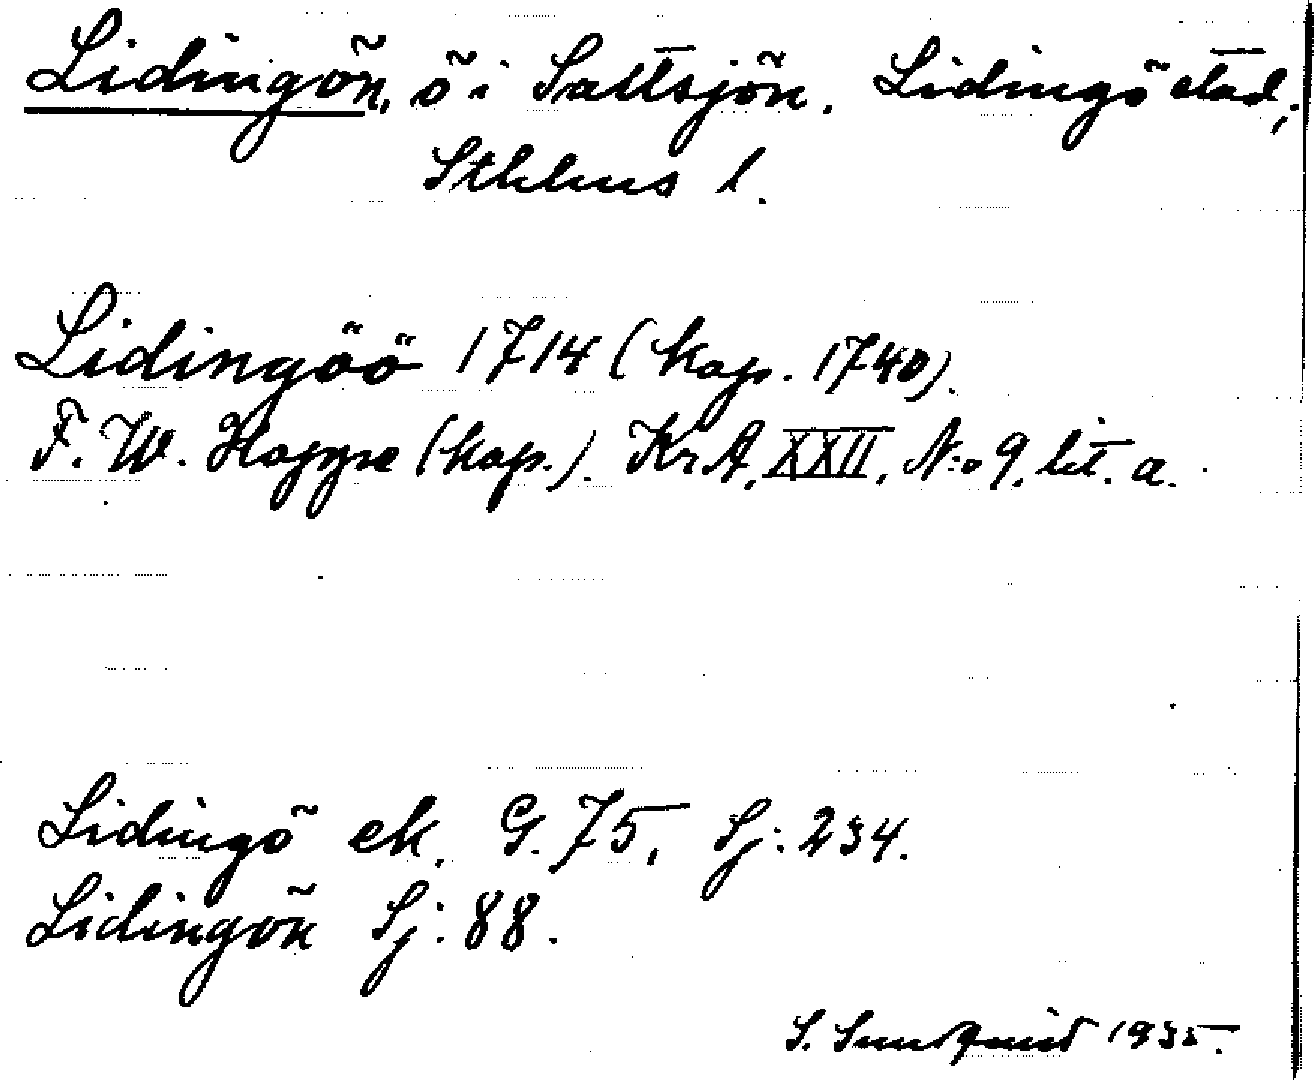 Lidingön, ö i Saltsjön. Lidingö stad,
Sthlms l.
Lidingöö 1714 (kop. 1740).
F. W. Hoppe (kop.). KrA, XXII, N:o 9, lit. a.
Lidingö ek. G. 75, Sj: 234.
Lidingön Sj: 88.
S. Sundquist 1935.